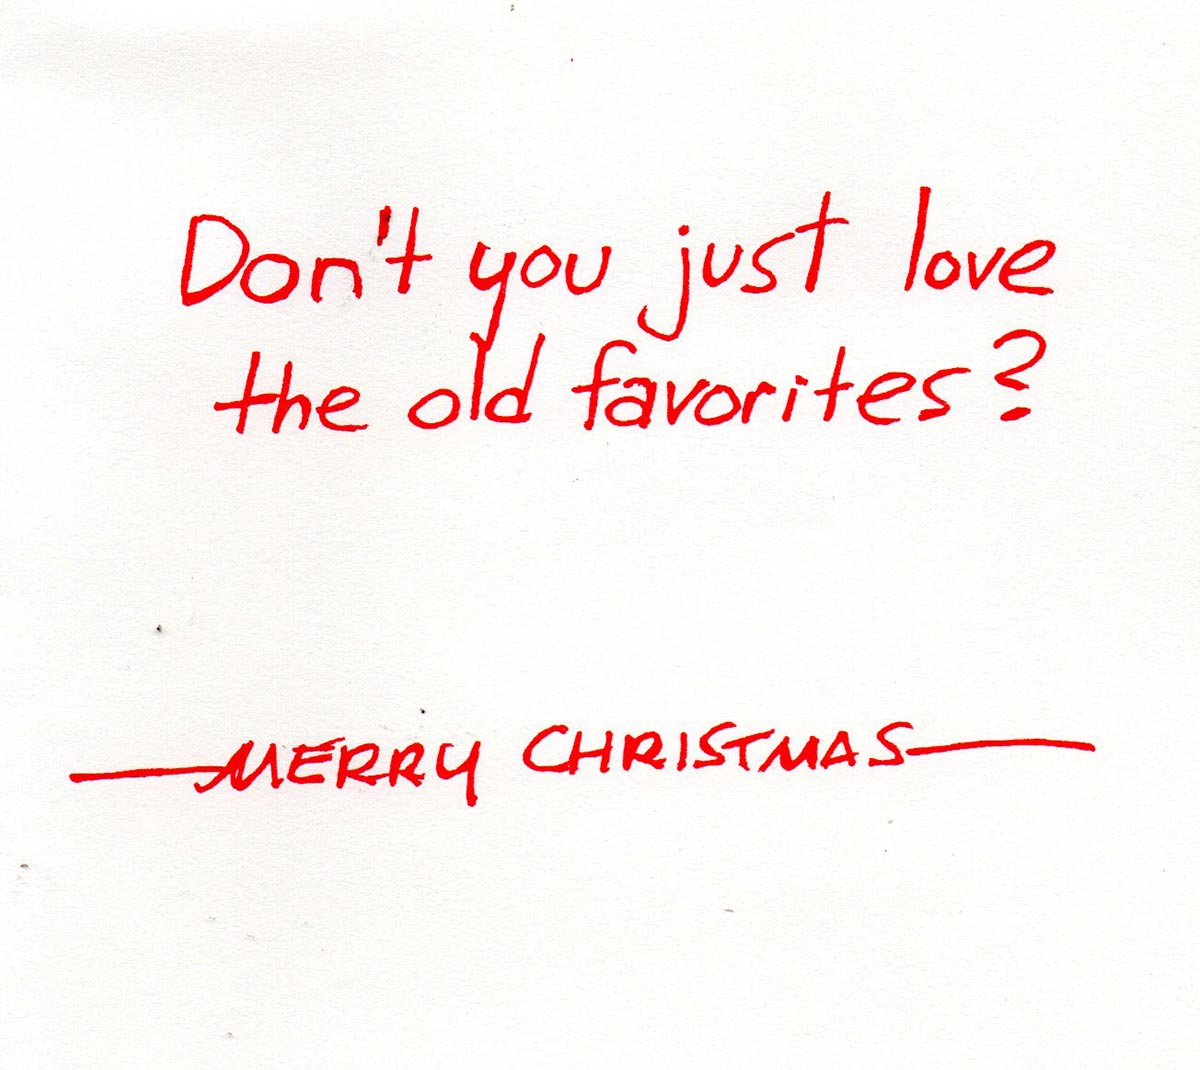 Don't you just love
the old favorites?
MERRY CHRISTMAS